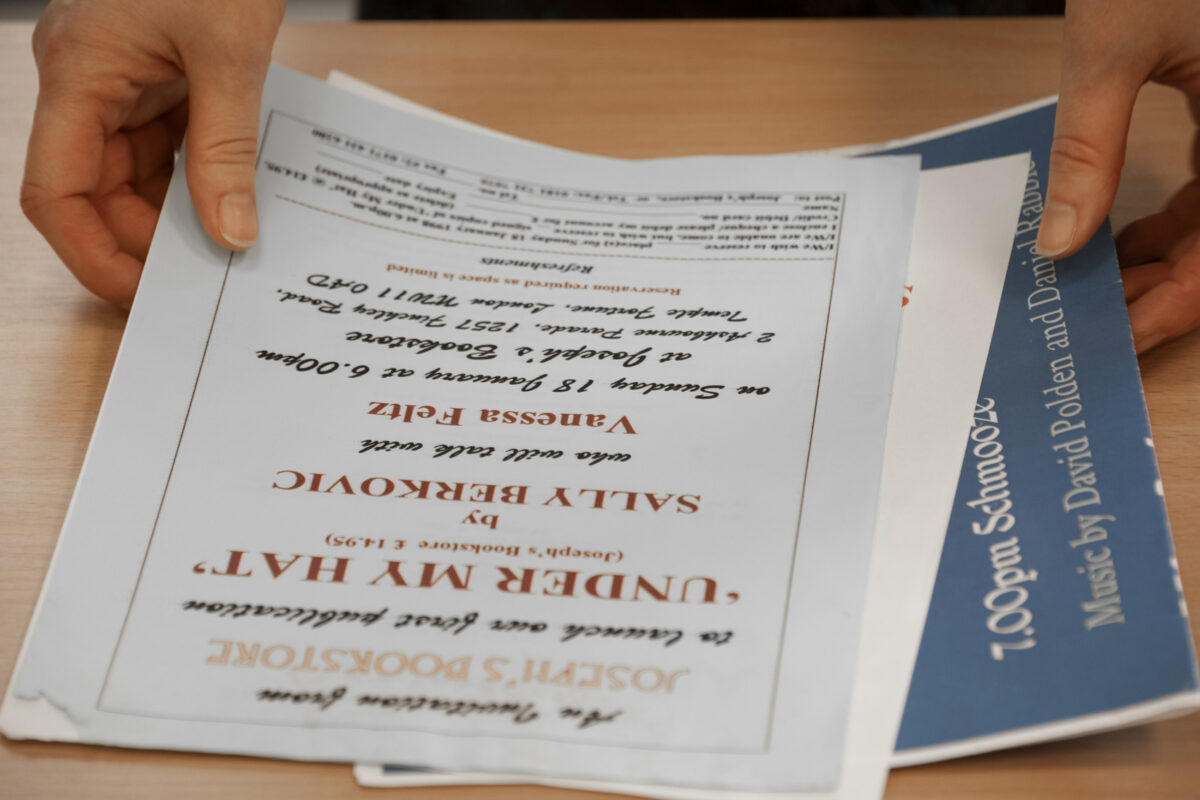 An Invitation from
JOSEPH'S BOOKSTORE
to launch our first publication
'UNDER MY HAT'
(Joseph's Bookstore £ 14.95)
by
SALLY BERKOVIC
who will talk with
Vanessa Feltz
on Sunday 18 January at 6.00pm
at Joseph's Bookstore
2 Ashbourne Parade, 1257 Finchley Road,
Temple Fortune, London NW11 0AD
Reservation required as space is limited
Refreshments
I/We wish to reserve place(s) for Sunday 18 January 1998 at 6.00p.m.
I/We are unable to come, but wish to reserve signed copies of 'Under My Hat' @ £14.95.
I enclose a cheque/ please debit my account for £ (delete as appropriate)
Credit/ Debit card no. Expiry date
Name Tel no
Post to: Joseph's Bookstore, or Tel/Fax: 0181 731 7575
7.00pm Schmooze
Music by David Polden and Daniel Rabb